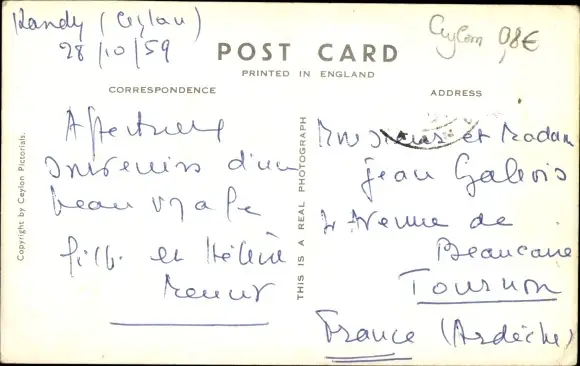 Kandy (Ceylan)
28/10/59
Ceylon 0,8€
POST CARD
PRINTED IN ENGLAND
CORRESPONDENCE
ADDRESS
Copyright by Ceylon Pictorials.
THIS IS A REAL PHOTOGRAPH
Affectueux
souvenirs d'un
beau voyage
et Hélène
Monsieur et Madame
Jean
Avenue de
Tournon
France (Ardèche)